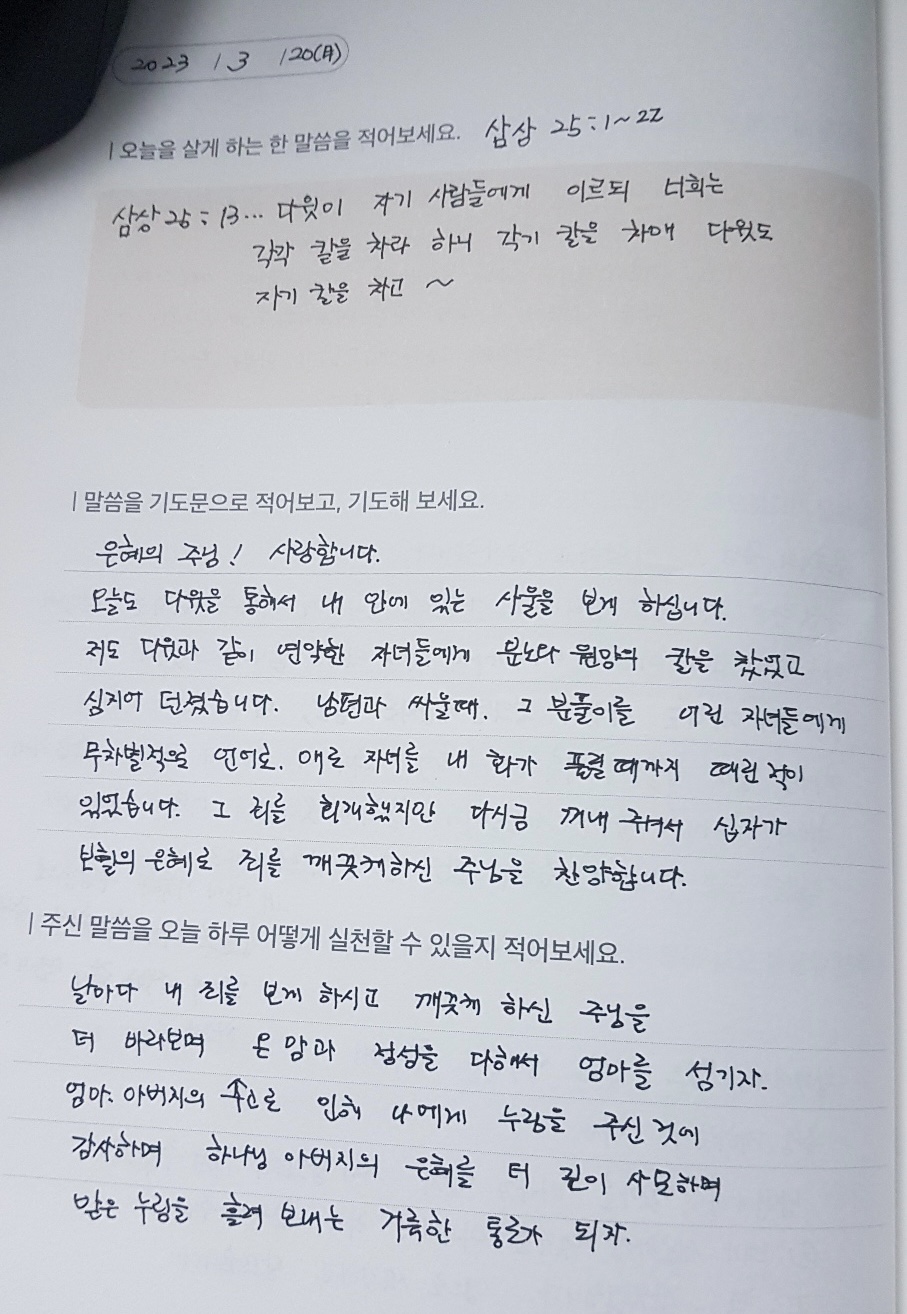 2023 / 3 / 20(月)
| 오늘을 살게 하는 한 말씀을 적어보세요. 삼상 25:1~22
삼상25:13... 다윗이 자기 사람들에게 이르되 너희는
각각 칼을 차라 하니 각기 칼을 차매 다윗도
자기 칼을 차고 ~
| 말씀을 기도문으로 적어보고, 기도해 보세요.
은혜의 주님! 사랑합니다.
오늘도 다윗을 통해서 내 안에 있는 사울을 보게 하십니다.
저도 다윗과 같이 연약한 자녀들에게 분노와 원망의 칼을 찼었고
심지어 던졌습니다. 남편과 싸울때. 그 분풀이를 어린 자녀들에게
무차별적으로 언어로. 매로 자녀를 내 화가 풀릴때까지 때린 적이
있었습니다. 그 죄를 회개했지만 다시금 꺼내 주셔서 십자가
보혈의 은혜로 죄를 깨끗케하신 주님을 찬양합니다.
| 주신 말씀을 오늘 하루 어떻게 실천할 수 있을지 적어보세요.
날마다 내 죄를 보게 하시고 깨끗케 하신 주님을
더 바라보며 온 맘과 정성을 다해서 엄마를 섬기자.
엄마. 아버지의 수고로 인해 나에게 누림을 주신 것에
감사하며 하나님 아버지의 은혜를 더 깊이 사모하며
받은 누림을 흘려 보내는 거룩한 통로가 되자.